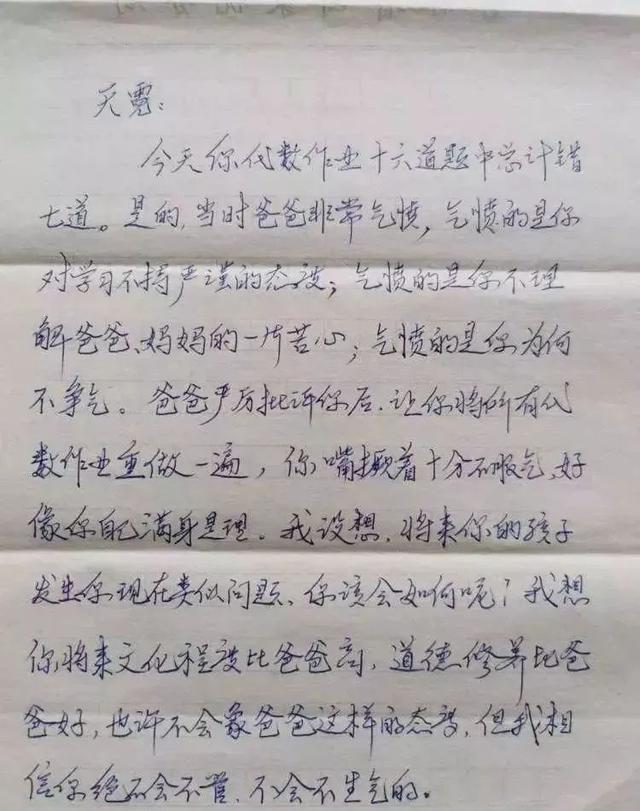 天霓：
今天你代数作业十六道题中总计错
七道。是的,当时爸爸非常气愤，气愤的是你
对学习不持严谨的态度；气愤的是你不理
解爸爸、妈妈的一片苦心；气愤的是你为何
不争气。爸爸严厉批评你后,让你将所有代
数作业重做一遍，你嘴撅着十分不服气,好
像你自己满身是理。我设想,将来你的孩子
发生你现在类似问题、你该会如何呢？我想
你将来文化程度比爸爸高,道德修养比爸
爸好,也许不会象爸爸这样的态度,但我相
信你绝不会不管、不会不生气的。